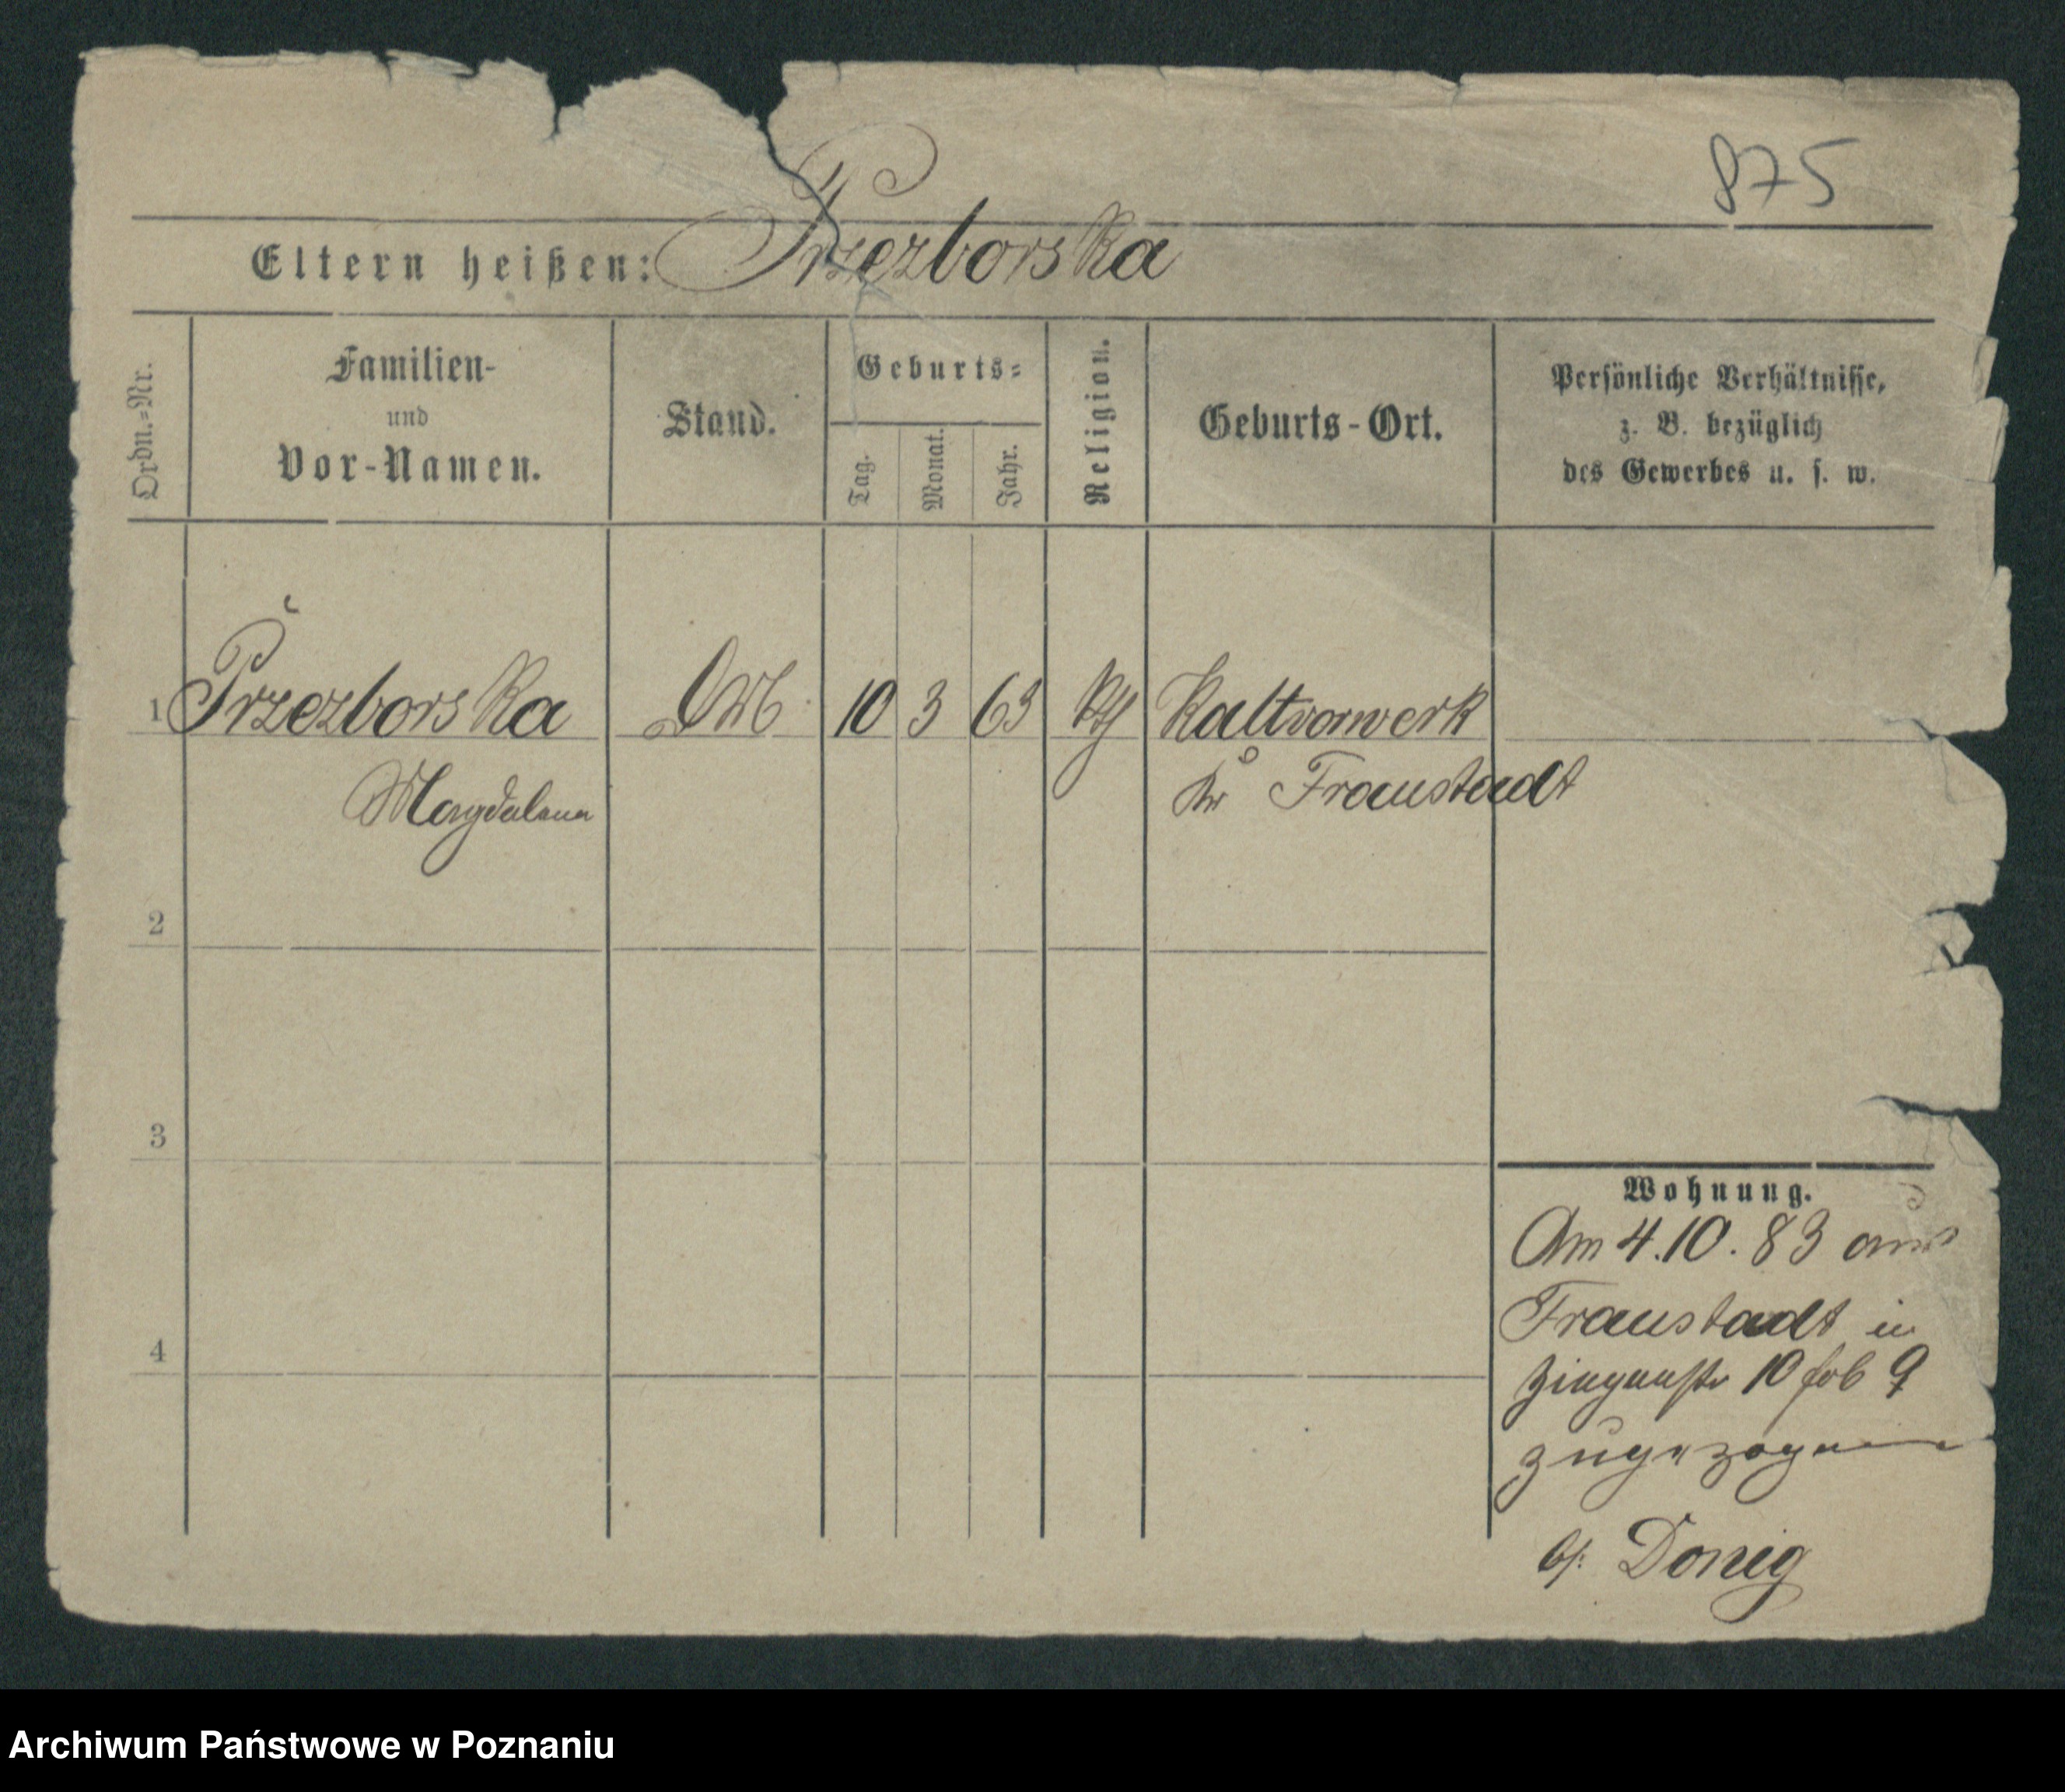 875
Eltern heißen: Przezborska
Ordn.=Nr.
Familien-
und
Vor-Namen.
Stand.
Geburts=
Tag.
Monat.
Jahr.
Religion.
Geburts-Ort.
Persönliche Verhältnisse,
z. B. bezüglich
des Gewerbes u. s. w.
1 Przezborska 10 3 63 Kaltvorwerk
Magdalena Kr Fraustadt
2
3
4
Wohnung.
Am 4.10.83 aus
Fraustadt in
10
zugezogen
Donig
Archiwum Państwowe w Poznaniu